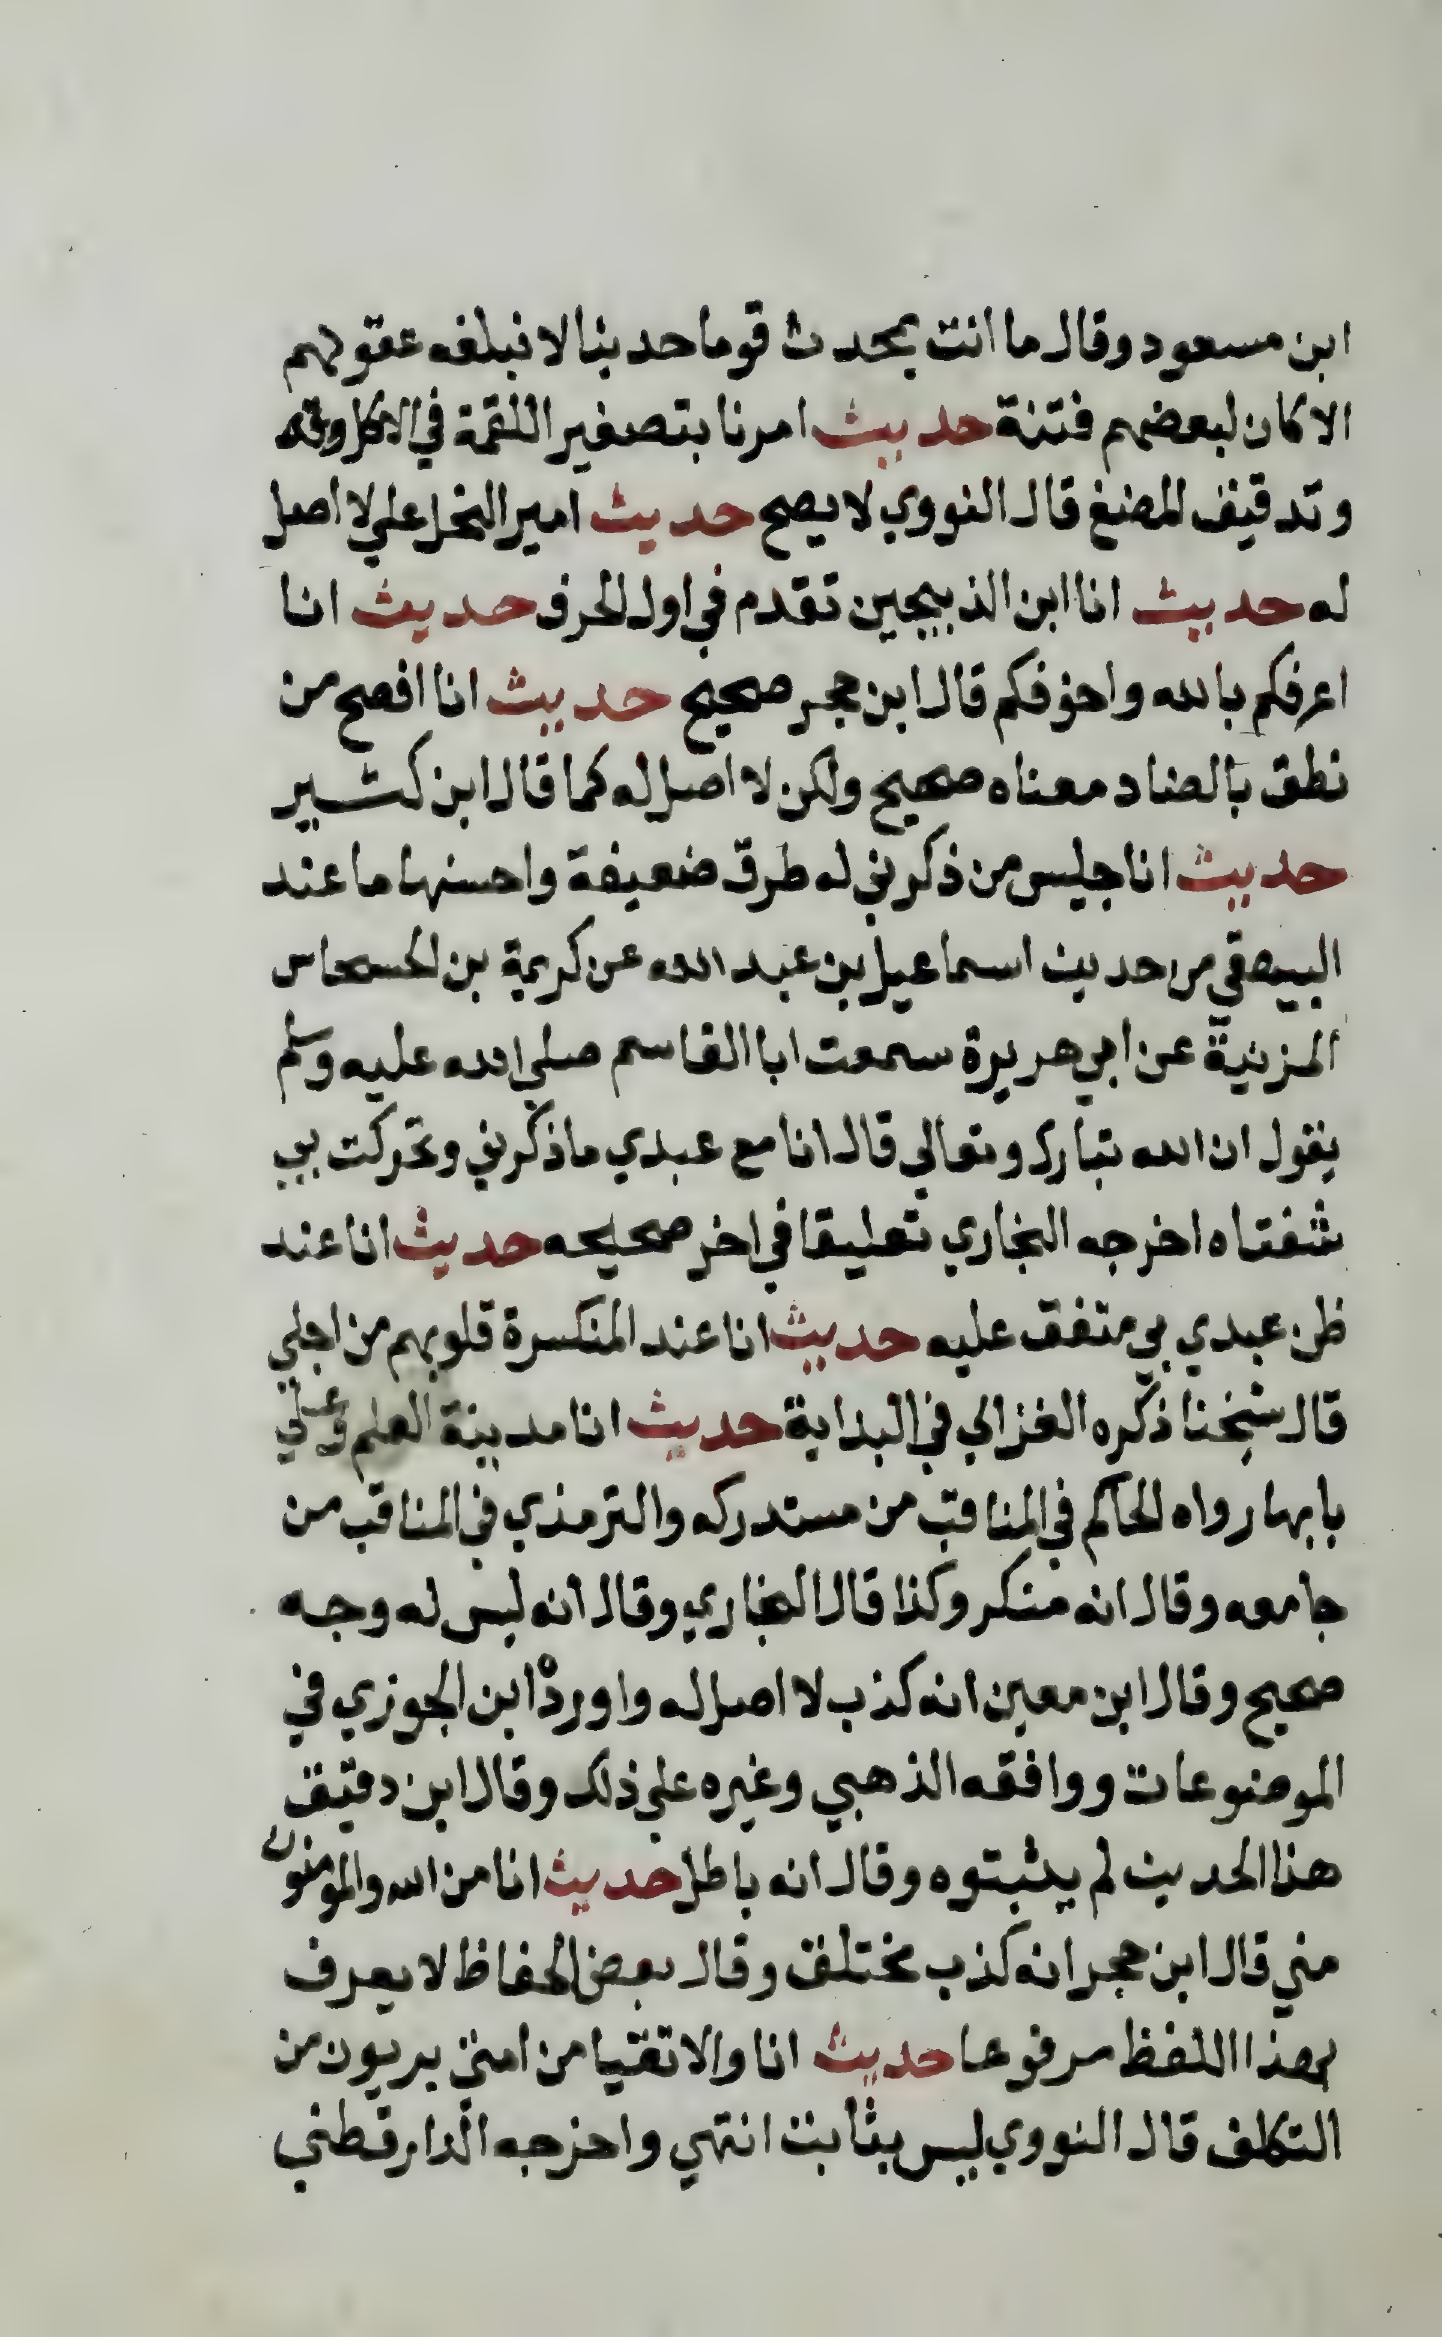 ابن مسعود وقال ما انت بمحدث قوما حديثا لا تبلغه عقولهم
الا كان لبعضهم فتنة حديث امرنا بتصغير اللقمة في الاكل
وتدقيق المضغ قال النووي لا يصح حديث امير النحل علي لا اصل
له حديث انا ابن الذبيحين تقدم في اول الحرف حديث انا
اعرفكم بالله واخوفكم قال ابن حجر صحيح حديث انا افصح من
نطق بالضاد معناه صحيح ولكن لا اصل له كما قال ابن كثير
حديث انا جليس من ذكرني له طرق ضعيفة واحسنها ما عند
البيهقي من حديث اسماعيل بن عبد الله عن كريمة بن الحسحاس
المزنية عن ابي هريرة سمعت ابا القاسم صلي الله عليه وسلم
يقول ان الله تبارك وتعالي قال انا مع عبدي ما ذكرني وتحركت بي
شفتاه اخرجه البخاري تعليقا في اخر صحيحه حديث انا عند
ظن عبدي بي متفق عليه حديث انا عند المنكسرة قلوبهم من اجلي
قال شيخنا ذكره الغزالي في البداية حديث انا مدينة العلم وعلي
بابها رواه الحاكم في المناقب من مستدركه والترمذي في المناقب من
جامعه وقال انه منكر وكذا قال البخاري وقال انه ليس له وجه
صحيح وقال ابن معين انه كذب لا اصل له واورده ابن الجوزي في
الموضوعات ووافقه الذهبي وغيره علي ذلك وقال ابن دقيق
هذا الحديث لم يثبتوه وقال انه باطل حديث انا من الله والمومنون
مني قال ابن حجر انه كذب مختلق وقال بعض الحفاظ لا يعرف
بهذا اللفظ مرفوعا حديث انا والاتقيا من امتي بريون من
التكلف قال النووي ليس بثابت انتهي واخرجه الدارقطني